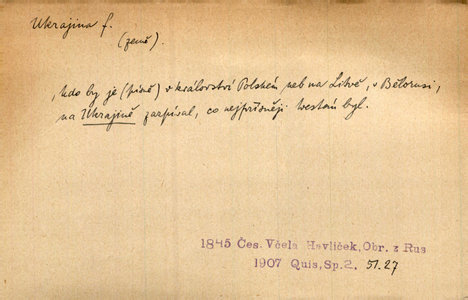 Ukrajina f.
(země).
, kdo by je (písně) v království Polském neb na Litvě, v Bělorusi,
na Ukrajině zarpíval, co nejpřísněji trestán byl.
1845 Čes. Včela Havlíček, Obr. z Rus
1907 Quis, Sp. 2. 51.27